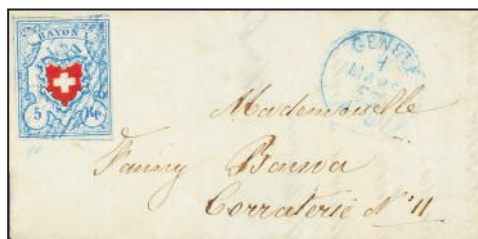 RAYON I.
5 Rp.
GENÈVE
1
MARS
Mademoiselle
Fanny
Corraterie N° 11